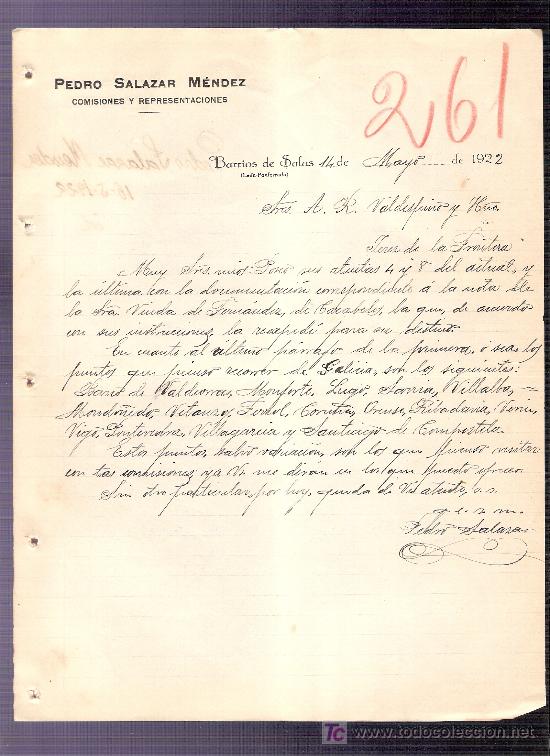 PEDRO SALAZAR MÉNDEZ
COMISIONES Y REPRESENTACIONES
261
Barrios de Salas 14 de Mayo de 1922
(León-Ponferrada)
Sres. A. R. Valdespino y Hno.
Jerez de la Frontera
Muy Sres. mios: Poseo sus atentas 4 y 8 del actual, y
la última con la documentación correspondiente á la nota de
la Sra. Viuda de Fernández, de Cacabelos, la que, de acuerdo
con sus instrucciones, la reexpedí para su destino.
En cuanto al último párrafo de la primera, ó sea, los
puntos que pienso recorrer de Galicia, son los siguientes:
Barco de Valdeorras, Monforte, Lugo, Sarria, Villalba,
Mondoñedo, Betanzos, Ferrol, Coruña, Orense, Ribadavia, Verín,
Vigo, Pontevedra, Villagarcia y Santiago de Compostela.
Estos puntos, salvo variacion, son los que pienso visitar
con tas comisiones, ya V. me diran en los que puedo ofrecer.
Sin otro particular, por hoy, queda de Vds. atento, s.s.
q. e. s. m.
Pedro Salazar
TC www.todocoleccion.net